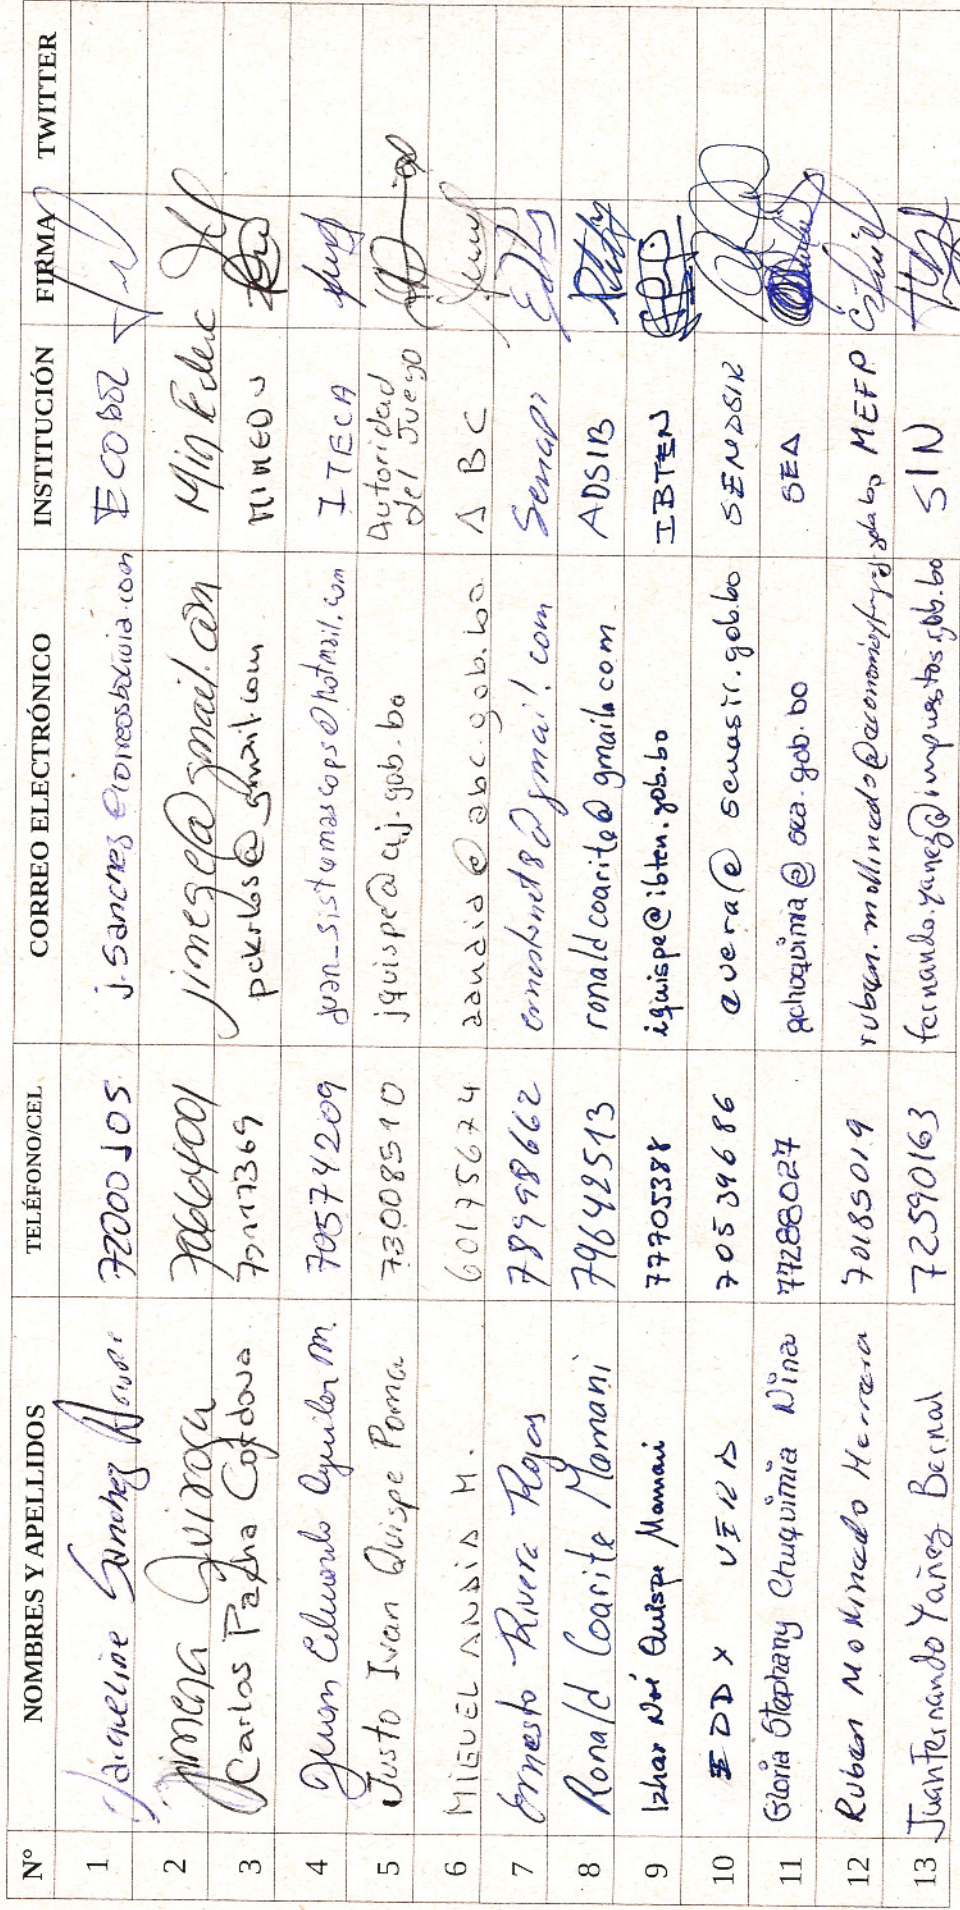 Nº NOMBRES Y APELLIDOS TELÉFONO/CEL CORREO ELECTRÓNICO INSTITUCIÓN FIRMA TWITTER
1 Jaqueline Sanchez 72000105 j.sanchez@correosbolivia.com ECOBOL
2 Jimena Quiroga 70664001 jimesela@gmail.com Min Educ
3 Carlos Patiño Cordova pckrlos@gmail.com MINEDU
4 Juan Eduardo Aguilar M. 70574209 juan_sistemascops@hotmail.com ITECA
5 Justo Ivan Quispe Poma 73008510 jquispe@aj.gob.bo Autoridad del Juego
6 MIGUEL ANDIA M. 60175674 aandia@abc.gob.bo ABC
7 Ernesto Rivera Rojas 78998662 ernestonet8@gmail.com Senapi
8 Ronald Coarite Mamani 79642513 ronaldcoarite@gmail.com ADSIB
9 Izhar Noé Quispe Mamani 77705388 iquispe@ibten.gob.bo IBTEN
10 EDDY VERA 70539686 evera@senasir.gob.bo SENASIR
11 Gloria Stephany Chuquimia Nina 77288027 gchuquimia@oea.gob.bo
12 Ruben Mollinedo Herrera 70185019 ruben.mollinedo@economiayfinanzas.gob.bo MEFP
13 Juan Fernando Yañez Bernal 72590163 fernando.yanez@impuestos.gob.bo SIN